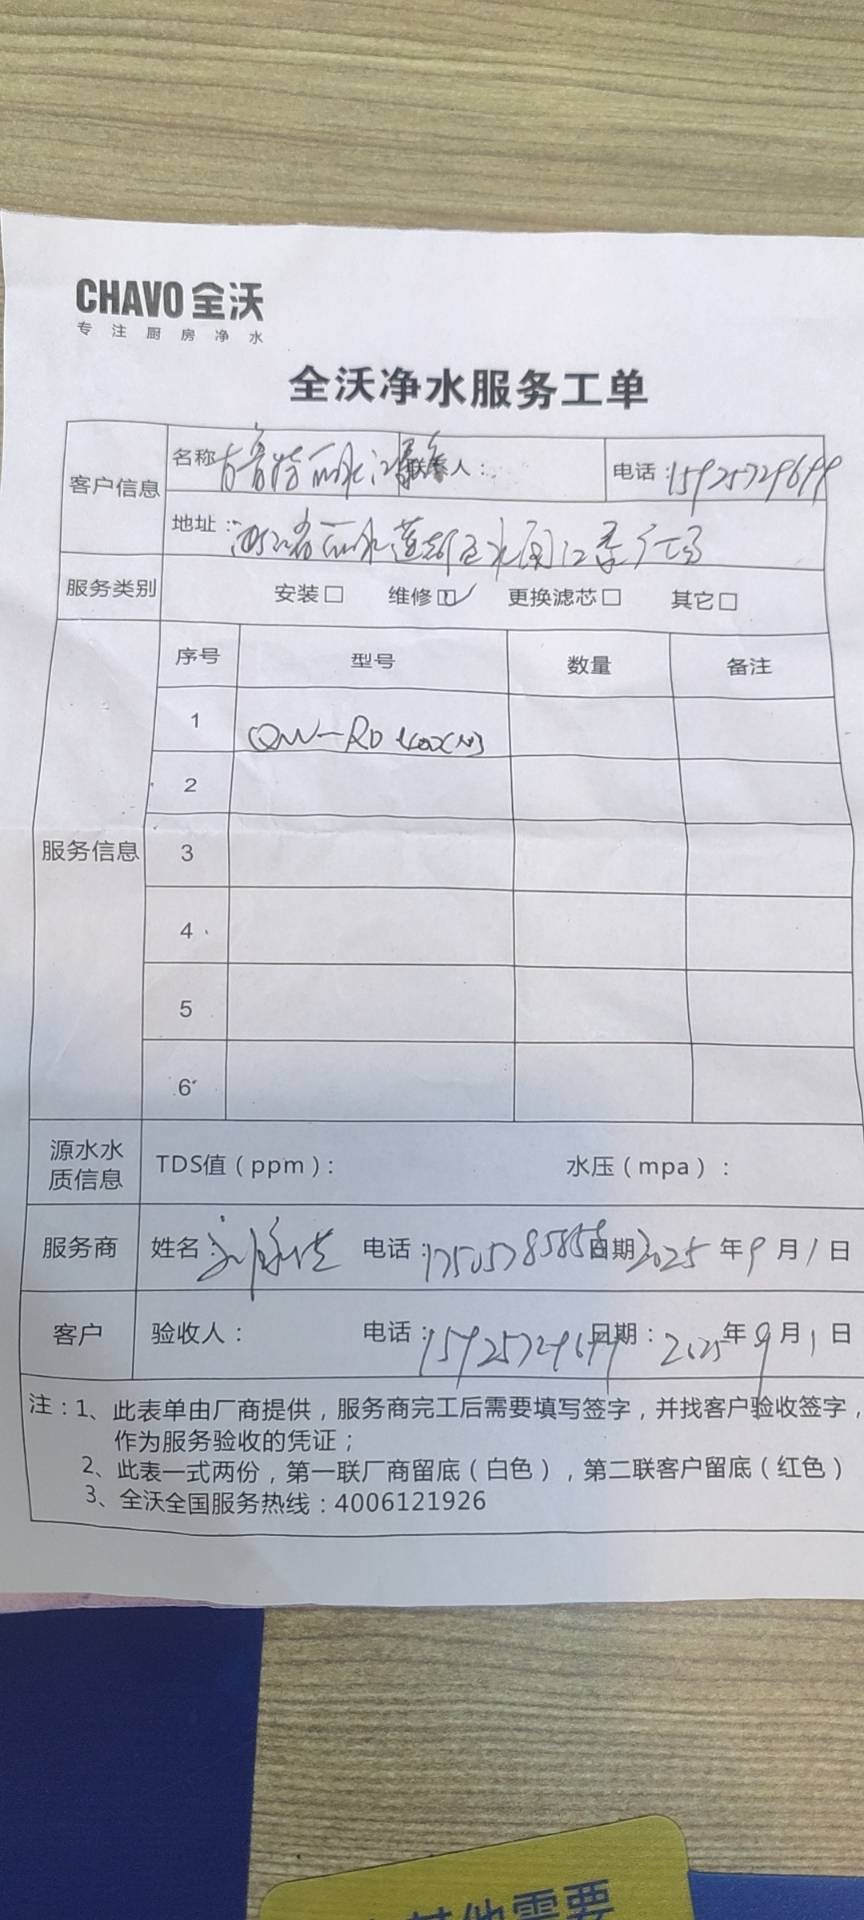 CHAVO 全沃
专注厨房净水
全沃净水服务工单
客户信息
名称 古鲁特丽水江 联系人： 电话：15925729699
地址： 浙江省丽水莲都区水阁江季广场
服务类别 安装□ 维修☑ 更换滤芯□ 其它□
服务信息
序号 型号 数量 备注
1 QW-RO 400C(N)
2
3
4
5
6
源水水质信息 TDS值（ppm）： 水压（mpa）：
服务商 姓名： 电话： 日期 2025 年 9 月 1 日
客户 验收人： 电话：15925729699 日期： 2025 年 9 月 1 日
注：1、此表单由厂商提供，服务商完工后需要填写签字，并找客户验收签字，
作为服务验收的凭证；
2、此表一式两份，第一联厂商留底（白色），第二联客户留底（红色）
3、全沃全国服务热线：4006121926
其他需要